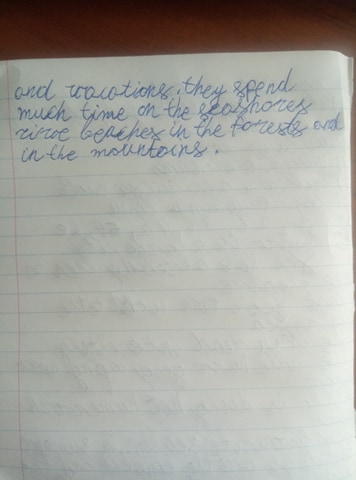 and vacations. they spend
much time on the seashores
rive beaches in the forests and
in the mountains.